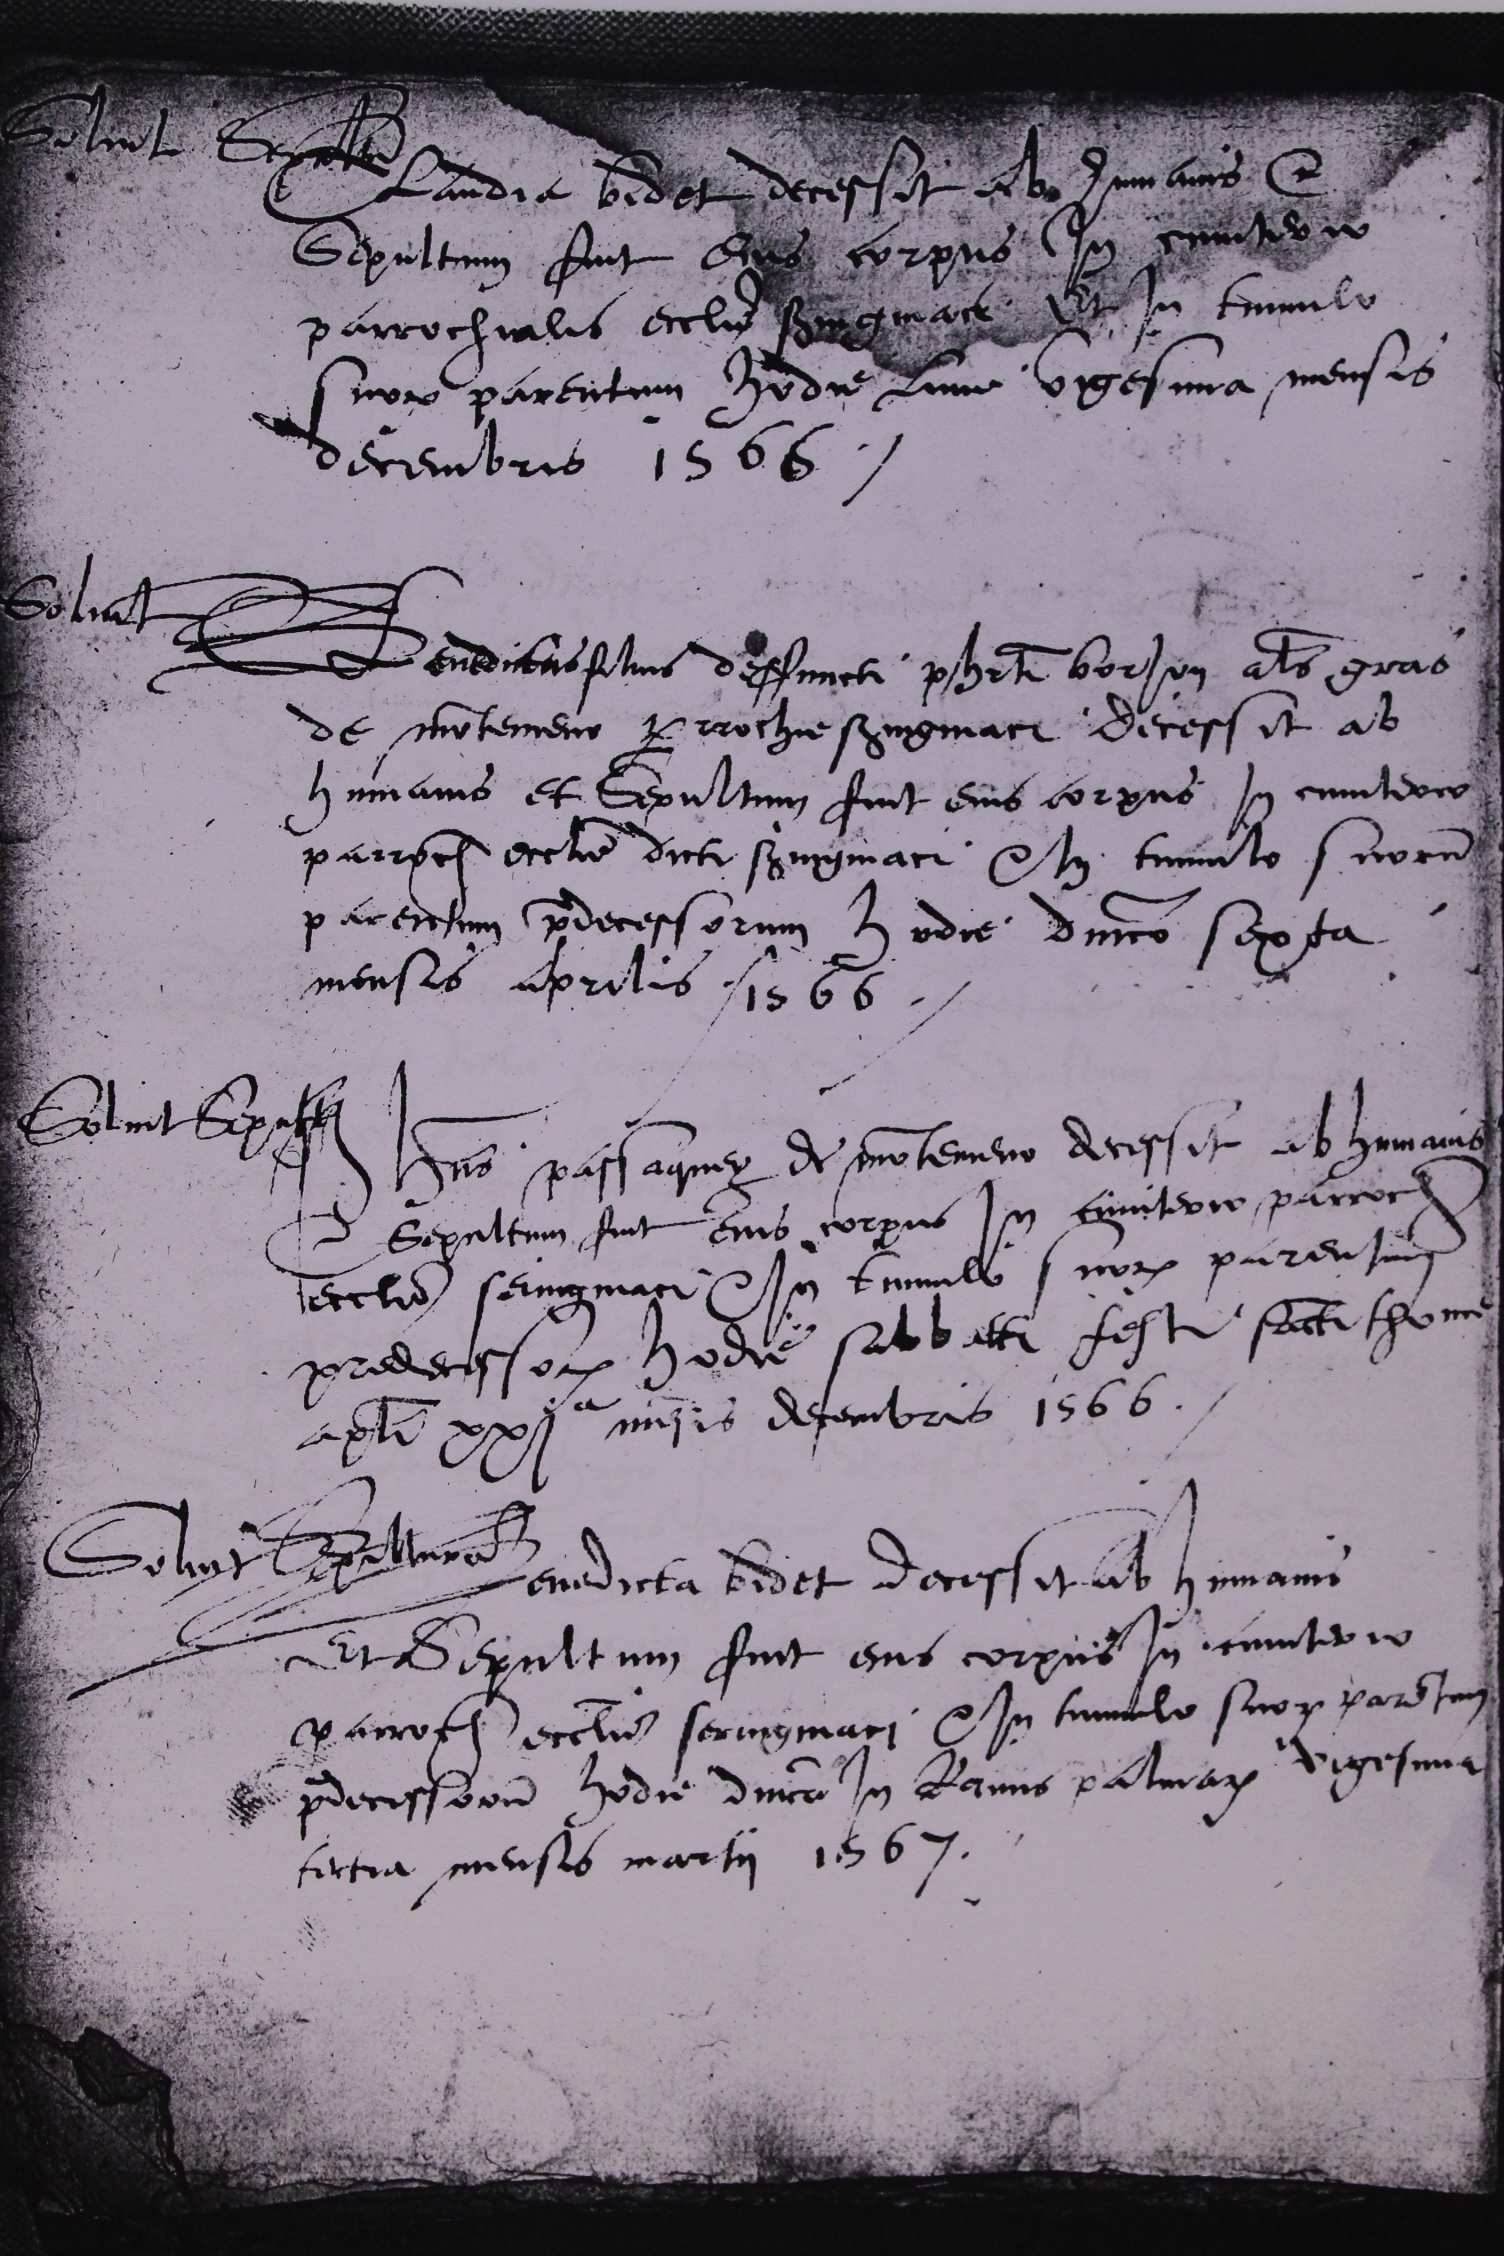 Soluit Sepult
Claudia bidet decessit ab humanis Et
Sepultum fuit Eius corpus In cimiterio
parrochialis ecclie syngniaci Et In tumulo
suor parentum hodie lune vigesima mensis
decembris 1566 /
Soluit
Benedictus filius deffuncti phrti borson als gras
de motemeno parrochie syngniaci decessit ab
humanis et Sepultum fuit eius corpus In cimiterio
parroch ecclie dicti syngniaci et In tumulo suoru
parentum predecessorum hodie dnico sexta
mensis aprilis 1566 /
Soluit Sepult
Jhns passaquey de motemeno decessit ab humanis
Et Sepultum fuit eius corpus In cimiterio parroch
ecclie seingniaci et In tumulo suor parentum
predecessor hodie sabbatti festi sacti thome
apli xxj a mesis decembris 1566 /
Soluit Sepultura
Benedicta bidet decessit ab humanis
Et Sepultum fuit eius corpus In cimiterio
parroch ecclie seringniaci et In tumulo suor parentum
predecessoru hodie dnica In Ramis palmar vigesima
tertia mensis martii 1567.